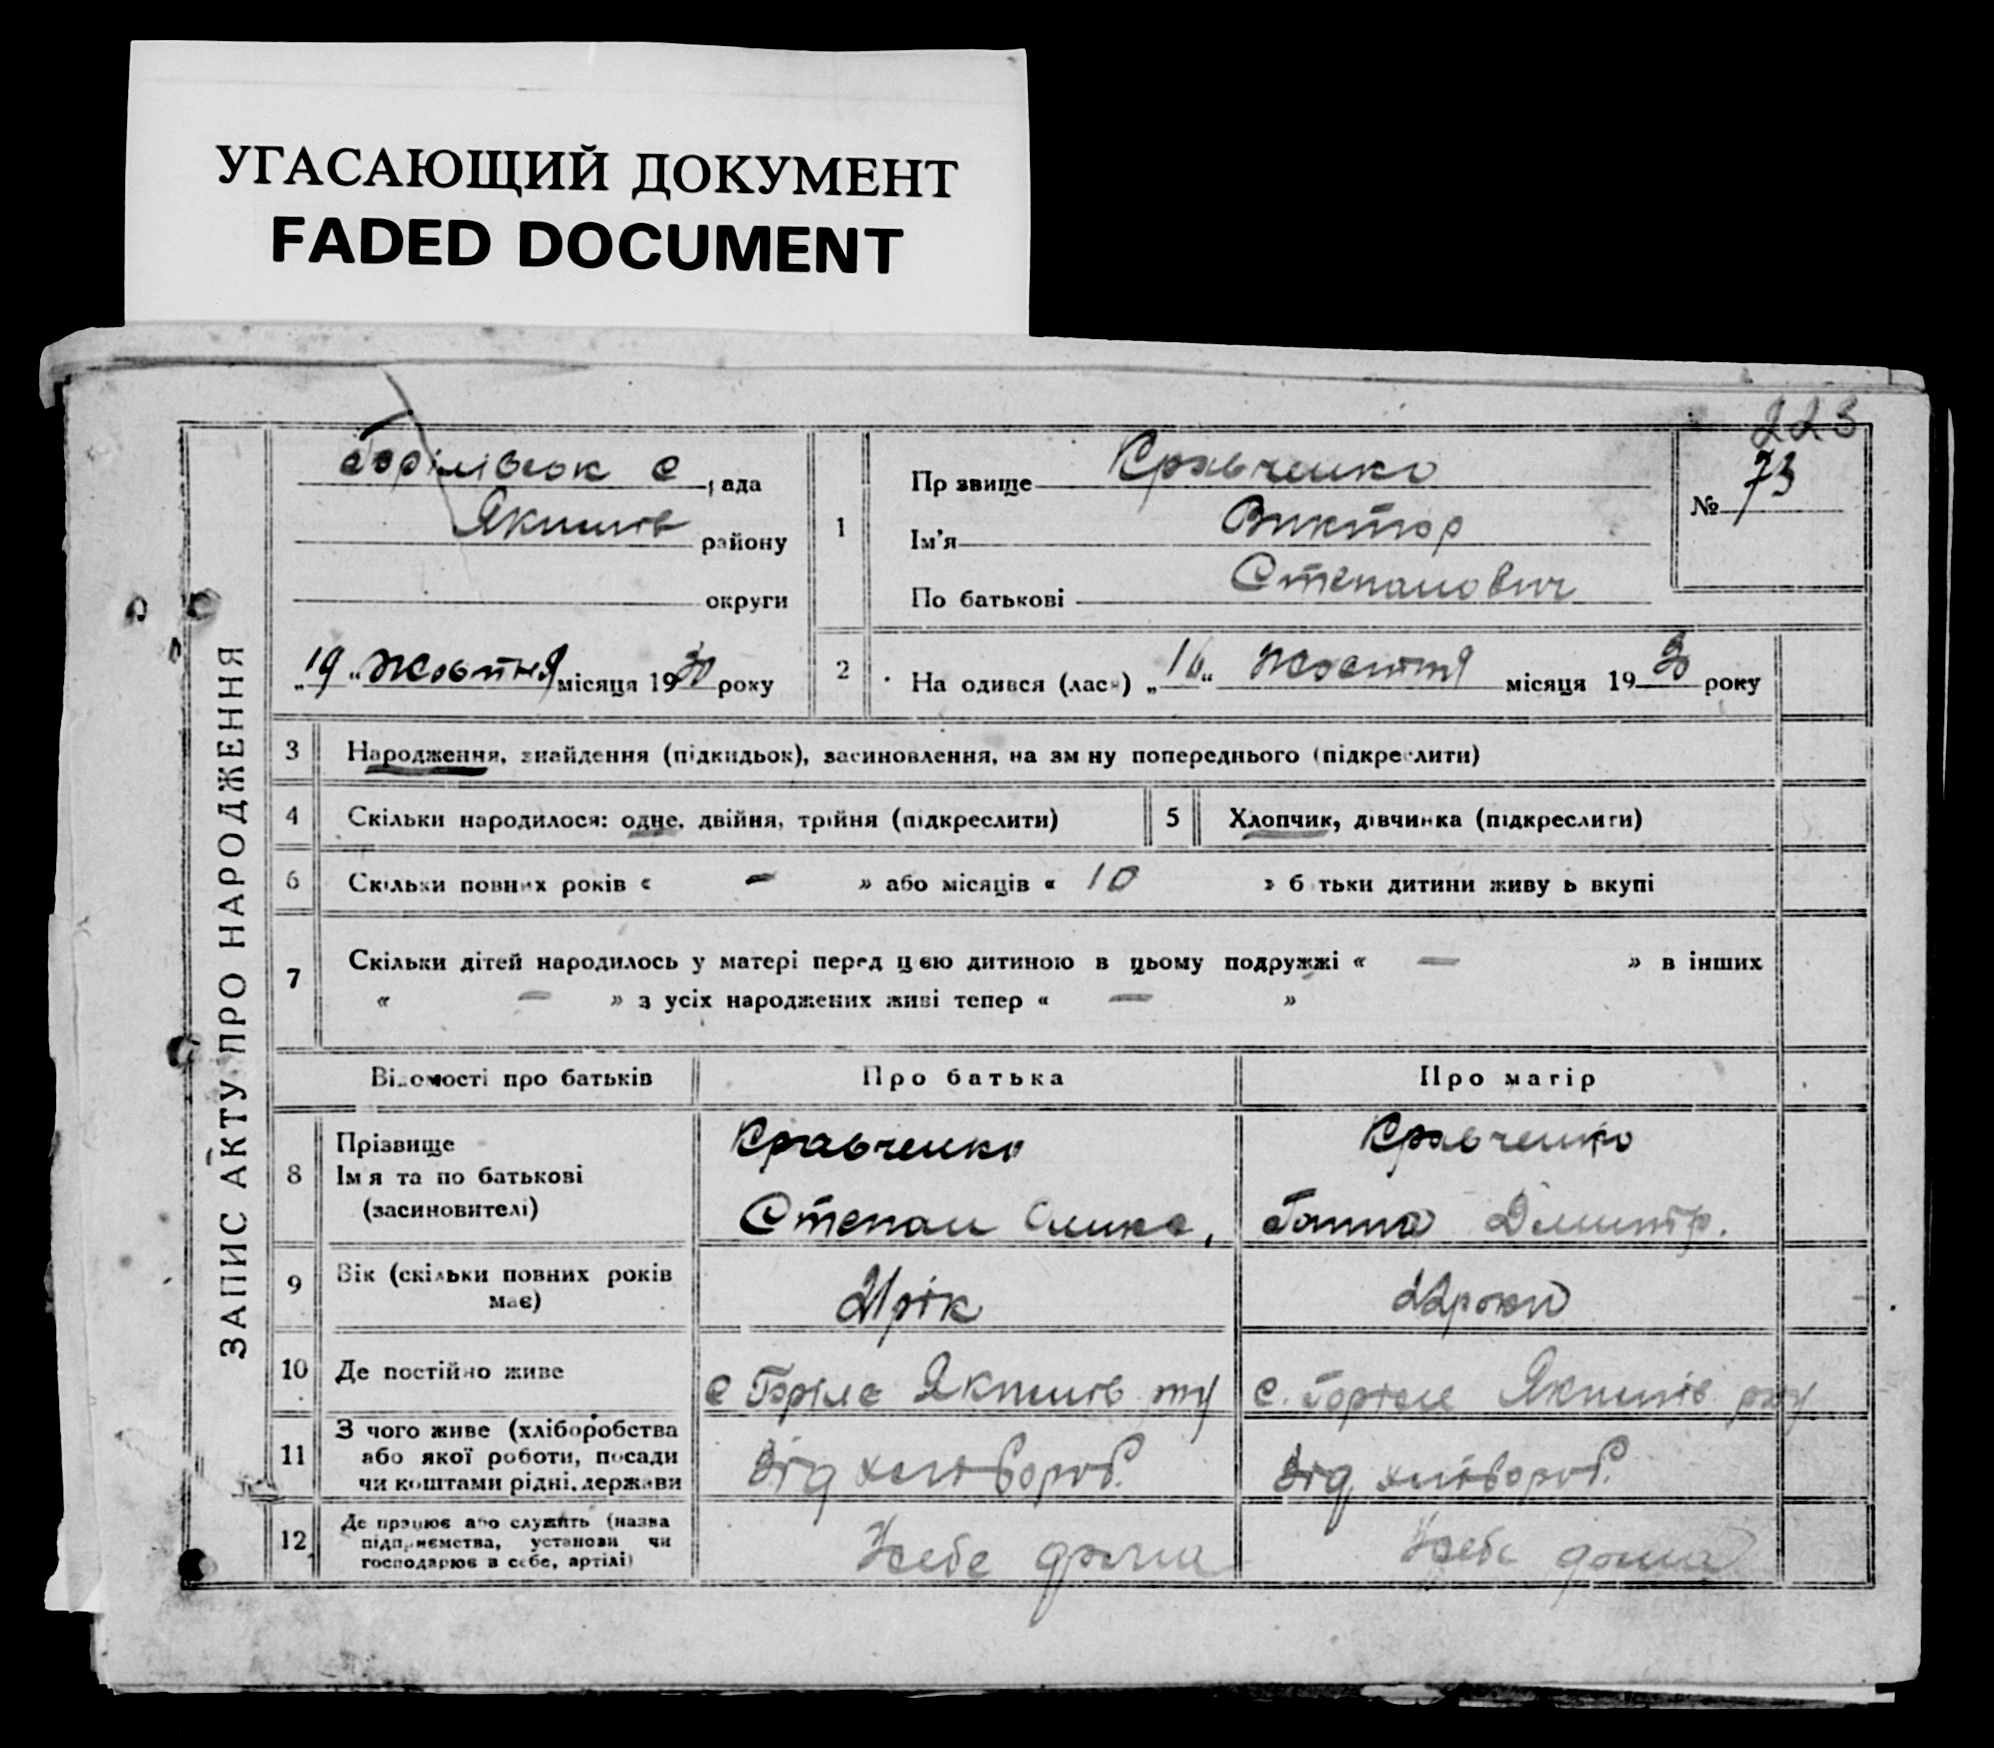 УГАСАЮЩИЙ ДОКУМЕНТ
FADED DOCUMENT
223
ЗАПИС АКТУ ПРО НАРОДЖЕННЯ
Горілівськ с рада
Якимів району
округи
„19“ Жовтня місяця 1930 року
1
Прізвище Кравченко
Ім'я Виктор
По батькові Степанович
№ 73
2 На одився (лась) „16“ Жовтня місяця 1930 року
3 Народження, знайдення (підкидьок), засиновлення, на зм ну попереднього (підкреслити)
4 Скільки народилося: одне, двійня, трійня (підкреслити) 5 Хлопчик, дівчинка (підкреслити)
6 Скільки повних років « – » або місяців « 10 » б тьки дитини живу ь вкупі
7 Скільки дітей народилось у матері перед цією дитиною в цьому подружжі « — » в інших
« – » з усіх народжених живі тепер « — »
Відомості про батьків Про батька Про матір
8 Прізвище
Імя та по батькові
(засиновителі)
Кравченко
Степан
Кравченко
Ганна Дмитр.
9 Вік (скільки повних років
має)
21 рік
22 роки
10 Де постійно живе
с Горіле Якимів р-ну
с. Горіле Якимів р-ну
11 З чого живе (хліборобства
або якої роботи, посади
чи коштами рідні, держави
Від хліборob.
Від хліборob.
12 Де працює або служить (назва
підприємства, установи чи
господарює в себе, артілі)
У себе дома
У себе дома